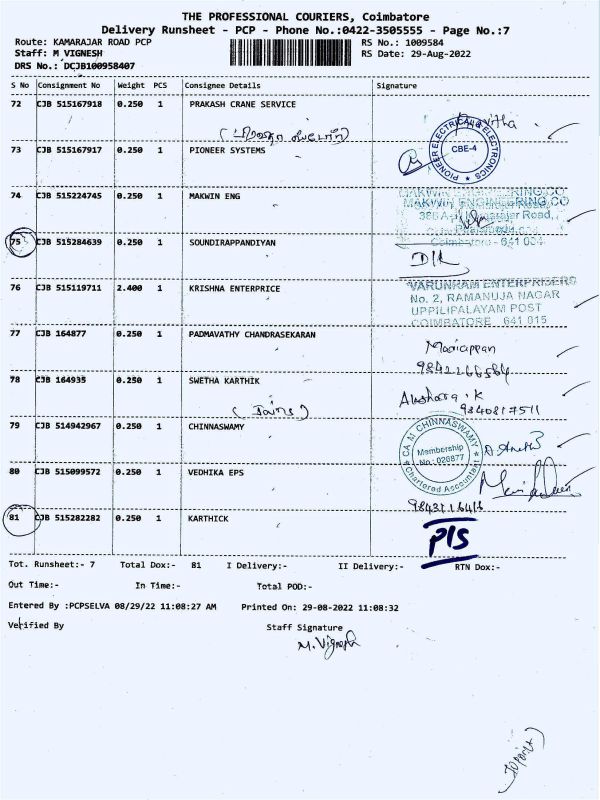 THE PROFESSIONAL COURIERS, Coimbatore
Delivery Runsheet - PCP - Phone No.:0422-3505555 - Page No.:7
Route: KAMARAJAR ROAD PCP RS No.: 1009584
Staff: M VIGNESH RS Date: 29-Aug-2022
DRS No.: DCJB100958407
S No Consignment No Weight PCS Consignee Details Signature
72 CJB 515167918 0.250 1 PRAKASH CRANE SERVICE
73 CJB 515167917 0.250 1 PIONEER SYSTEMS
PIONEER ELECTRICAL & ELECTRONICS
CBE-4
74 CJB 515224745 0.250 1 MAKWIN ENG
MAKWIN ENGINEERING CO
Coimbatore - 641 004
75 CJB 515284639 0.250 1 SOUNDIRAPPANDIYAN
D/L
76 CJB 515119711 2.400 1 KRISHNA ENTERPRICE
VARUNRAM ENTERPRISERS
No. 2, RAMANUJA NAGAR
UPPILIPALAYAM POST
COIMBATORE 641 015
77 CJB 164877 0.250 1 PADMAVATHY CHANDRASEKARAN
Mariappan
78 CJB 164935 0.250 1 SWETHA KARTHIK
Akshara.K
9840817511
79 CJB 514942967 0.250 1 CHINNASWAMY
CA M CHINNASWAMY
Membership
No.: 020877
Chartered Accountant
80 CJB 515099572 0.250 1 VEDHIKA EPS
81 CJB 515282282 0.250 1 KARTHICK
P/S
Tot. Runsheet:- 7 Total Dox:- 81 I Delivery:- II Delivery:- RTN Dox:-
Out Time:- In Time:- Total POD:-
Entered By :PCPSELVA 08/29/22 11:08:27 AM Printed On: 29-08-2022 11:08:32
Verified By Staff Signature
M. Vignesh